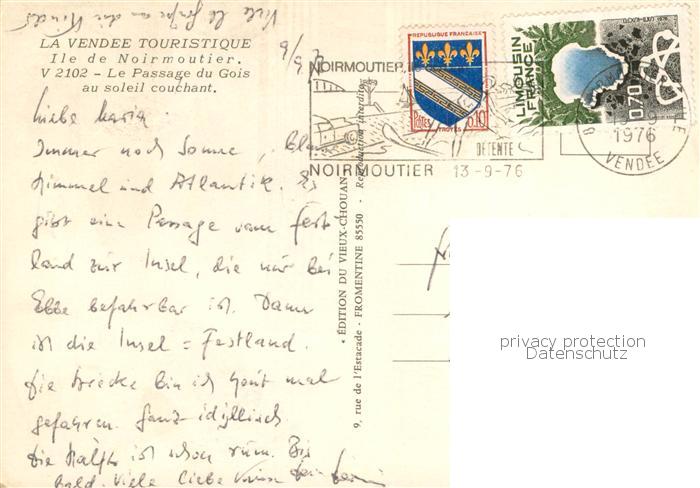 LA VENDEE TOURISTIQUE
Ile de Noirmoutier.
V 2102 - Le Passage du Gois
au soleil couchant.
Viele
Liebe Maria,
Immer noch Sonne, blauer
Himmel und Atlantik. Es
gibt eine Passage vom Fest-
land zur Insel, die nur bei
Ebbe befahrbar ist. Dann
ist die Insel = Festland.
Die Strecke bin ich heut mal
gefahren. Ganz idyllisch.
Die Hälfte ist schon rum. Bis
bald. Viele liebe
"EDITION DU VIEUX-CHOUAN"
9, rue de l'Estacade - FROMENTINE 85550 - Reproduction interdite
NOIRMOUTIER
DETENTE
NOIRMOUTIER 13-9-76
REPUBLIQUE FRANÇAISE
POSTES 0,10
TROYES
LIMOUSIN
FRANCE
0,70
1976
VENDÉE
privacy protection
Datenschutz